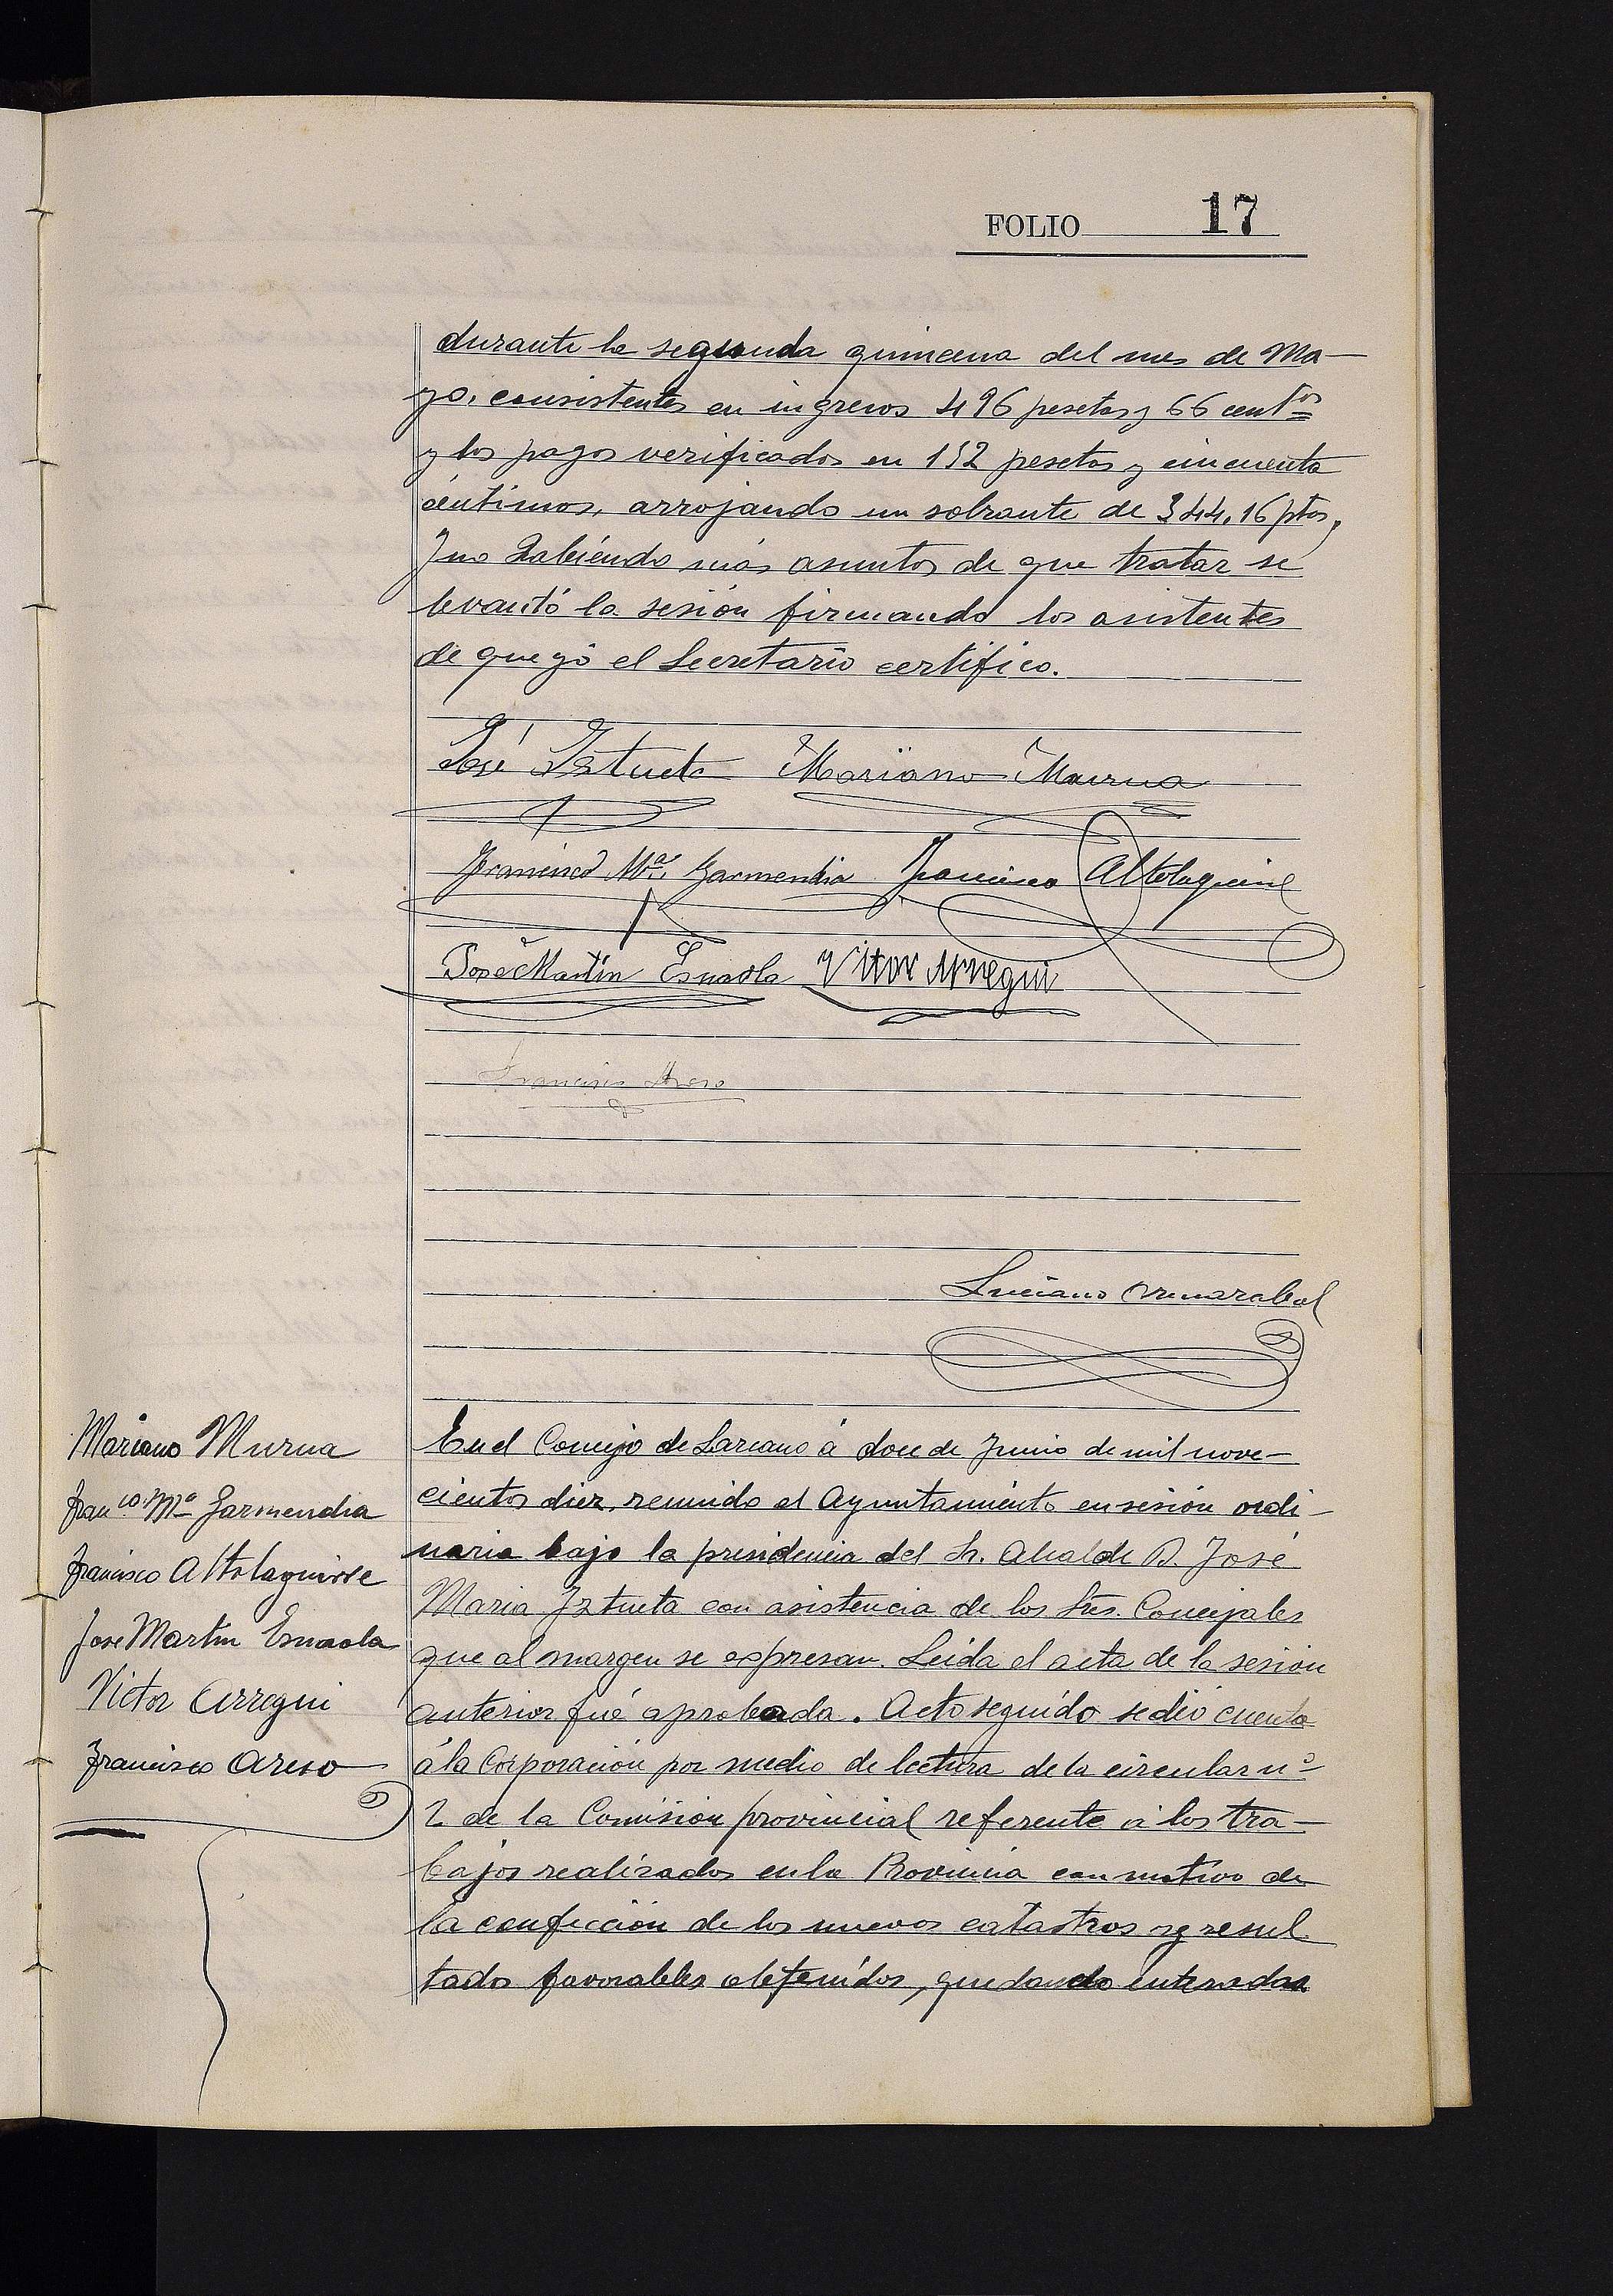 FOLIO 17
durante la segunda quincena del mes de Ma-
yo, consistentes en ingresos 496 pesetas y 66 centos
y los pagos verificados en 152 pesetas y cincuenta
céntimos, arrojando un sobrante de 344,16 ptas,
Y no habiéndo más asuntos de que tratar se
levantó la sesión firmando los asistentes
de que yó el Secretario certifico.
José Iztueta Mariano Murua
Francisco Mª Garmendia Francisco Altolaguirre
Jose Martín Esnaola Vitor Arregui
Francisco Areso
Luciano
Mariano Murua
Franco Mª Garmendia
Francisco Altolaguirre
Jose Martin Esnaola
Victor Arregui
Francisco Areso
En el Concejo de Lazcano á doce de Junio de mil nove-
cientos diez, reunido el Ayuntamiento en sesión ordi-
naria bajo la presidencia del Sr. Alcalde D. José
Maria Iztueta con asistencia de los Sres. Concejales
que al margen se expresan. Leida el acta de la sesión
anterior fué aprobada. Acto seguído se dió cuenta
á la Corporación por medio de lectura de la circular nº
2 de la Comisión provincial referente á los tra-
bajos realizados en la Provincia con motivo de
la confección de los nuevos catastros y resul
tados favorables obtenídos, quedando enterados